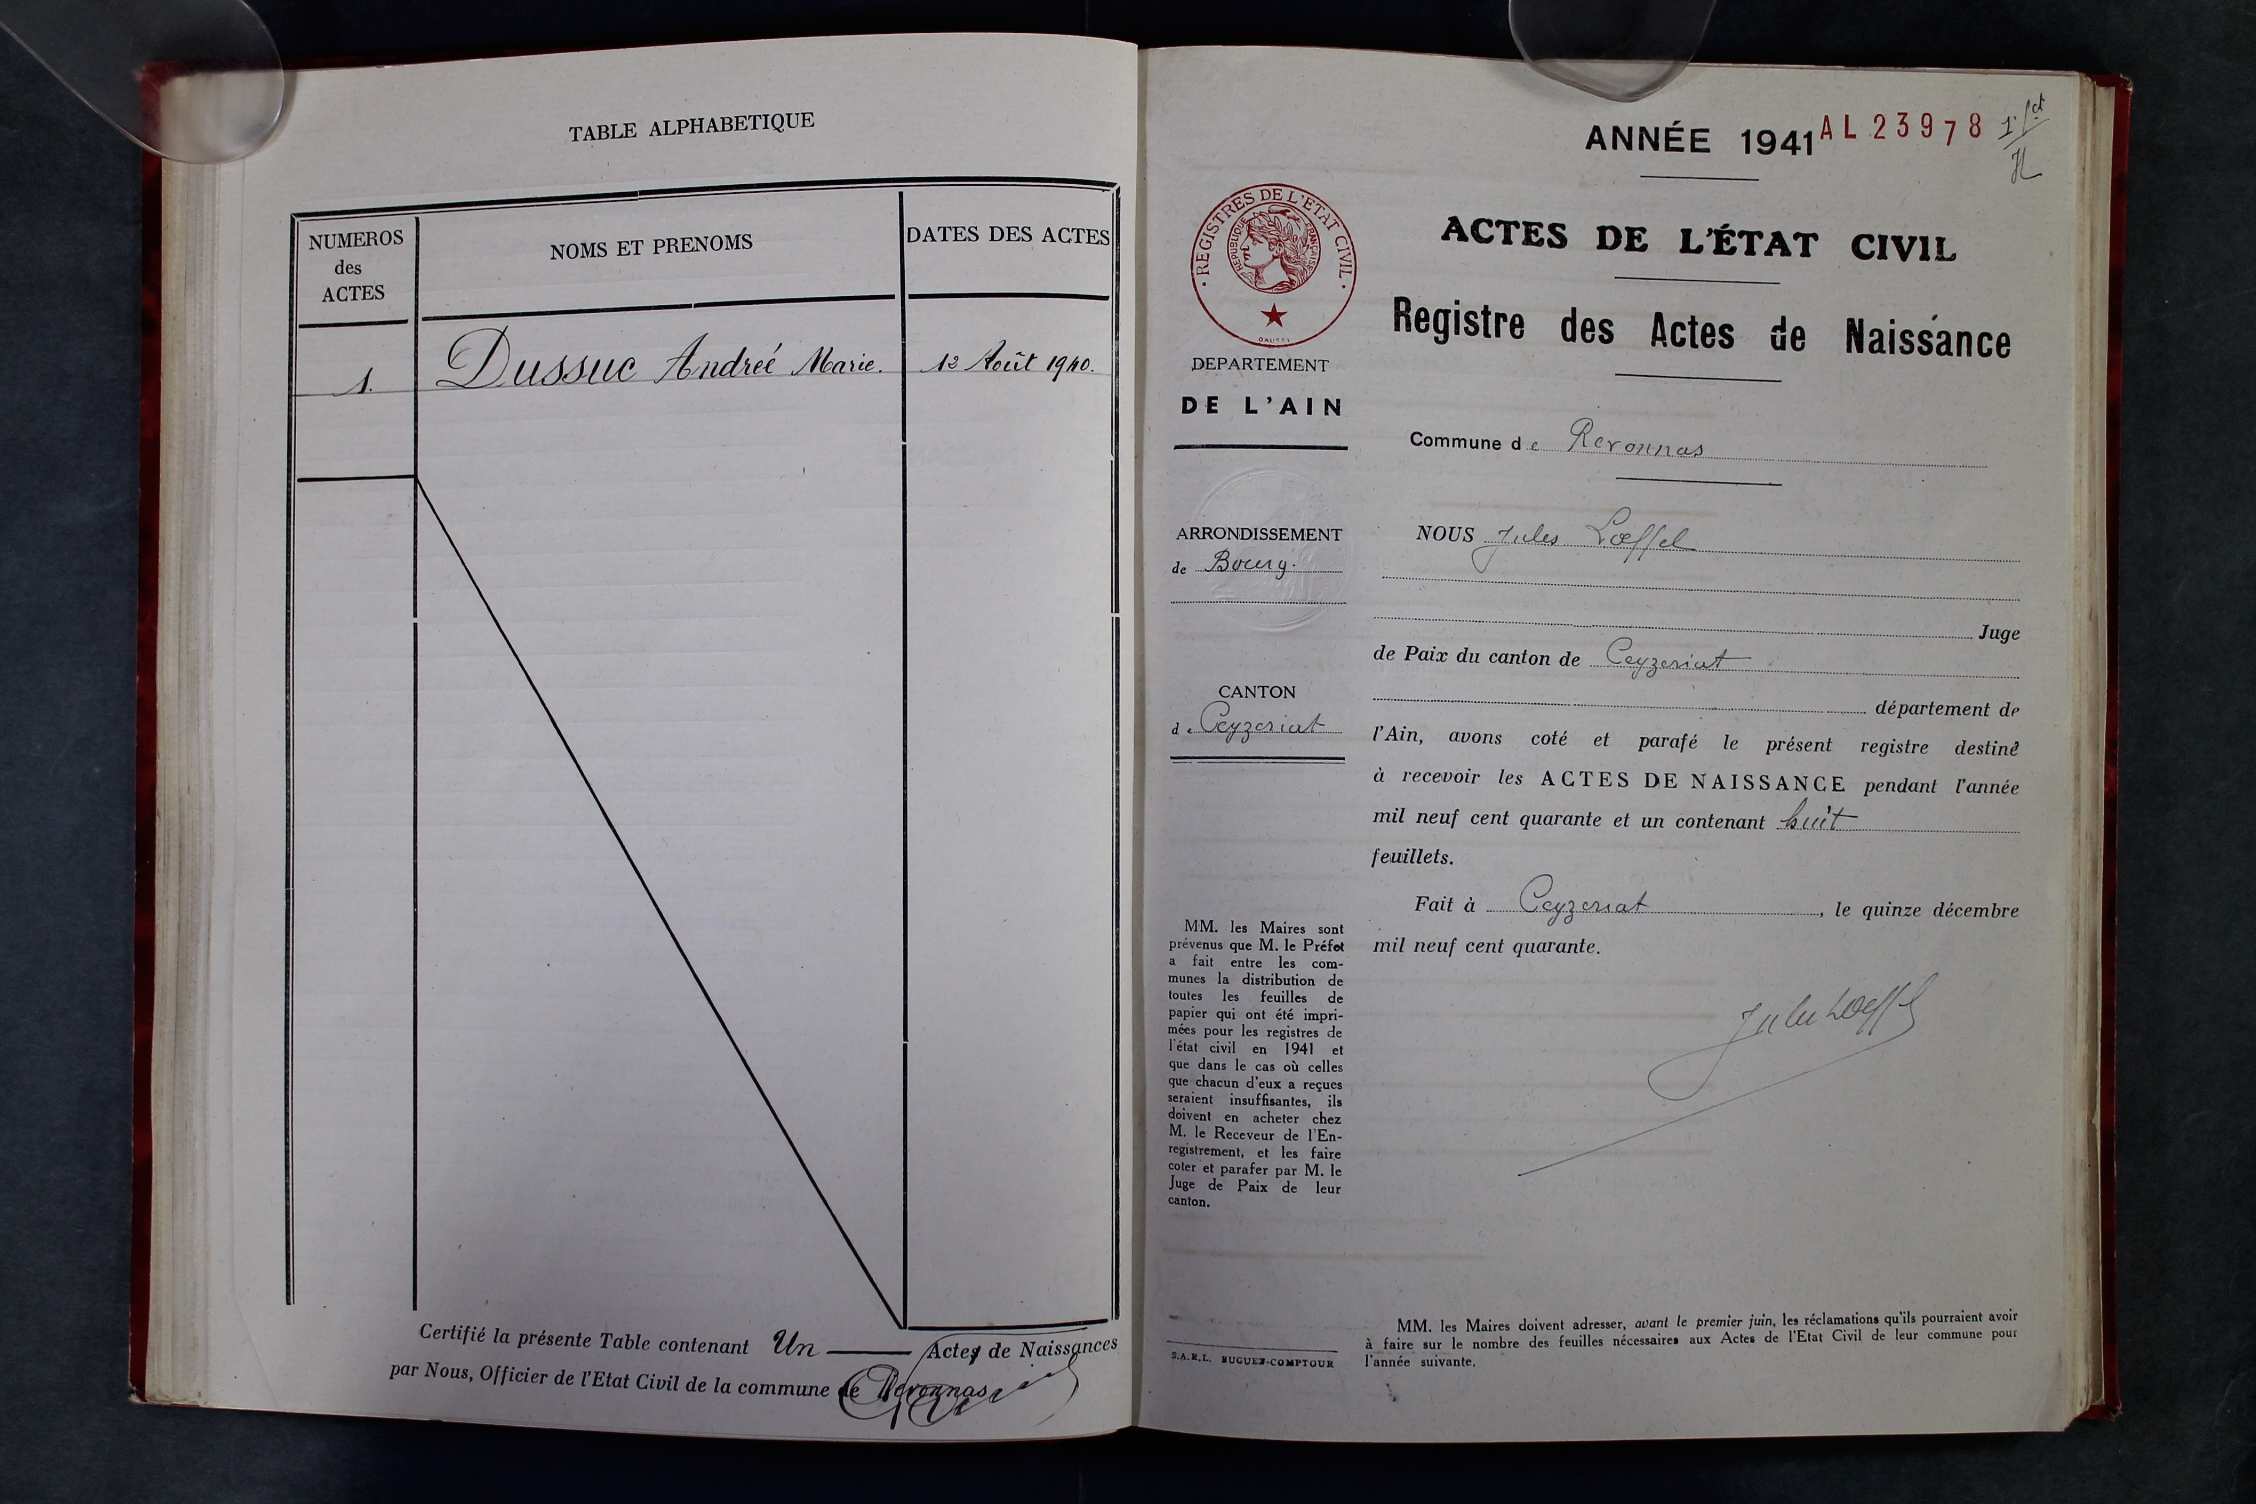 TABLE ALPHABETIQUE
NUMEROS
des
ACTES
NOMS ET PRENOMS
DATES DES ACTES
1. Dussuc Andreé Marie. 12 Août 1940.
Certifié la présente Table contenant Un Actes de Naissances
par Nous, Officier de l'Etat Civil de la commune de Revonnas
ANNÉE 1941
AL 23978
ACTES DE L'ÉTAT CIVIL
Registre des Actes de Naissance
· REGISTRES DE L'ETAT CIVIL ·
REPUBLIQUE FRANÇAISE
DEPARTEMENT
DE L'AIN
Commune de Revonnas
ARRONDISSEMENT
de Bourg.
CANTON
de Ceyzeriat
NOUS Jules Lœffel
Juge
de Paix du canton de Ceyzeriat
département de
l'Ain, avons coté et parafé le présent registre destiné
à recevoir les ACTES DE NAISSANCE pendant l'année
mil neuf cent quarante et un contenant huit
feuillets.
Fait à Ceyzeriat, le quinze décembre
mil neuf cent quarante.
Jules Lœffel
MM. les Maires sont
prévenus que M. le Préfet
a fait entre les com-
munes la distribution de
toutes les feuilles de
papier qui ont été impri-
mées pour les registres de
l'état civil en 1941 et
que dans le cas où celles
que chacun d'eux a reçues
seraient insuffisantes, ils
doivent en acheter chez
M. le Receveur de l'En-
registrement, et les faire
coter et parafer par M. le
Juge de Paix de leur
canton.
S.A.R.L. BUGUET-COMPTOUR
MM. les Maires doivent adresser, avant le premier juin, les réclamations qu'ils pourraient avoir
à faire sur le nombre des feuilles nécessaires aux Actes de l'Etat Civil de leur commune pour
l'année suivante.